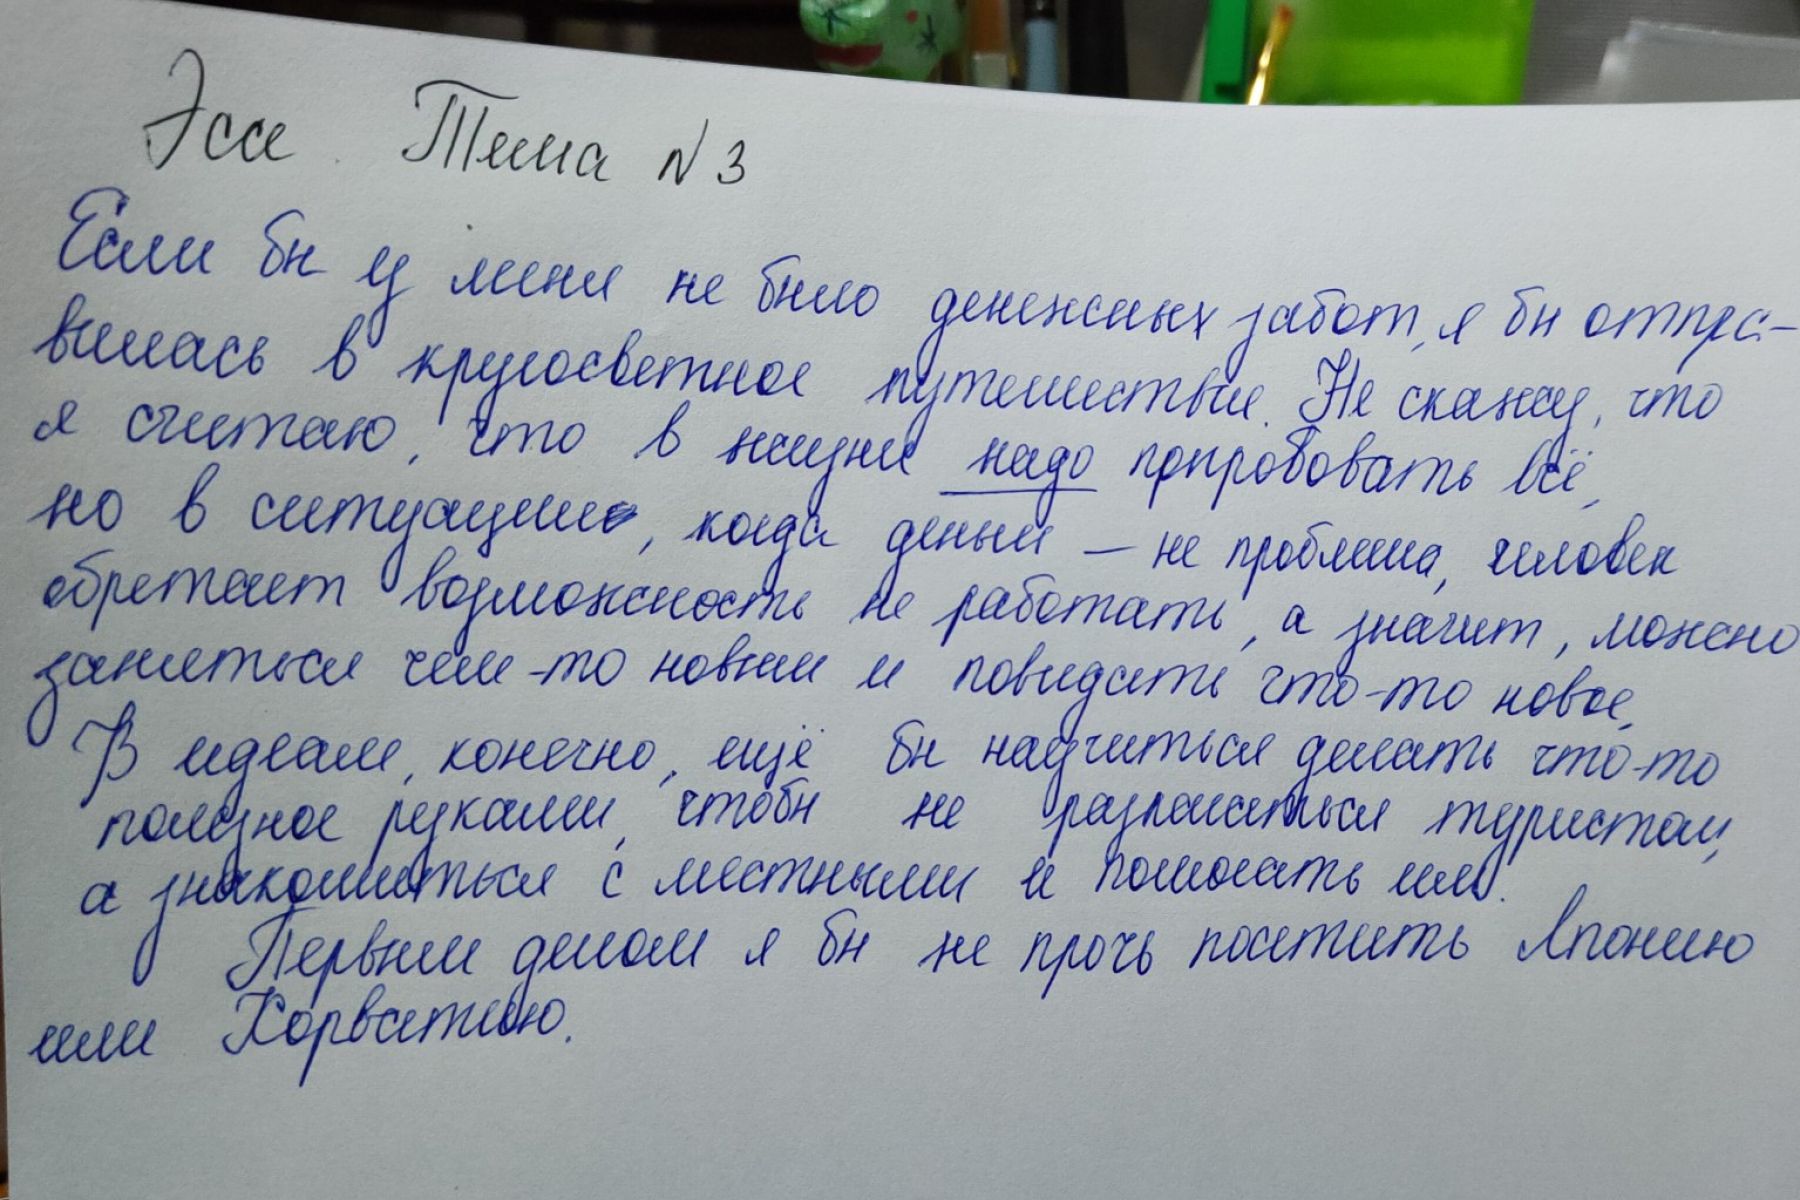 Эссе. Тема №3
Если бы у меня не было денежных забот, я бы отпра-
вилась в кругосветное путешествие. Не скажу, что
я считаю, что в жизни надо попробовать всё,
но в ситуации, когда деньги — не проблема, человек
обретает возможность не работать, а значит, можно
заняться чем-то новым и повидать что-то новое.
В идеале, конечно, ещё бы научиться делать что-то
полезное руками, чтобы не разлагаться туристом,
а знакомиться с местными и помогать им.
Первым делом я бы не прочь посетить Японию
или Хорватию.